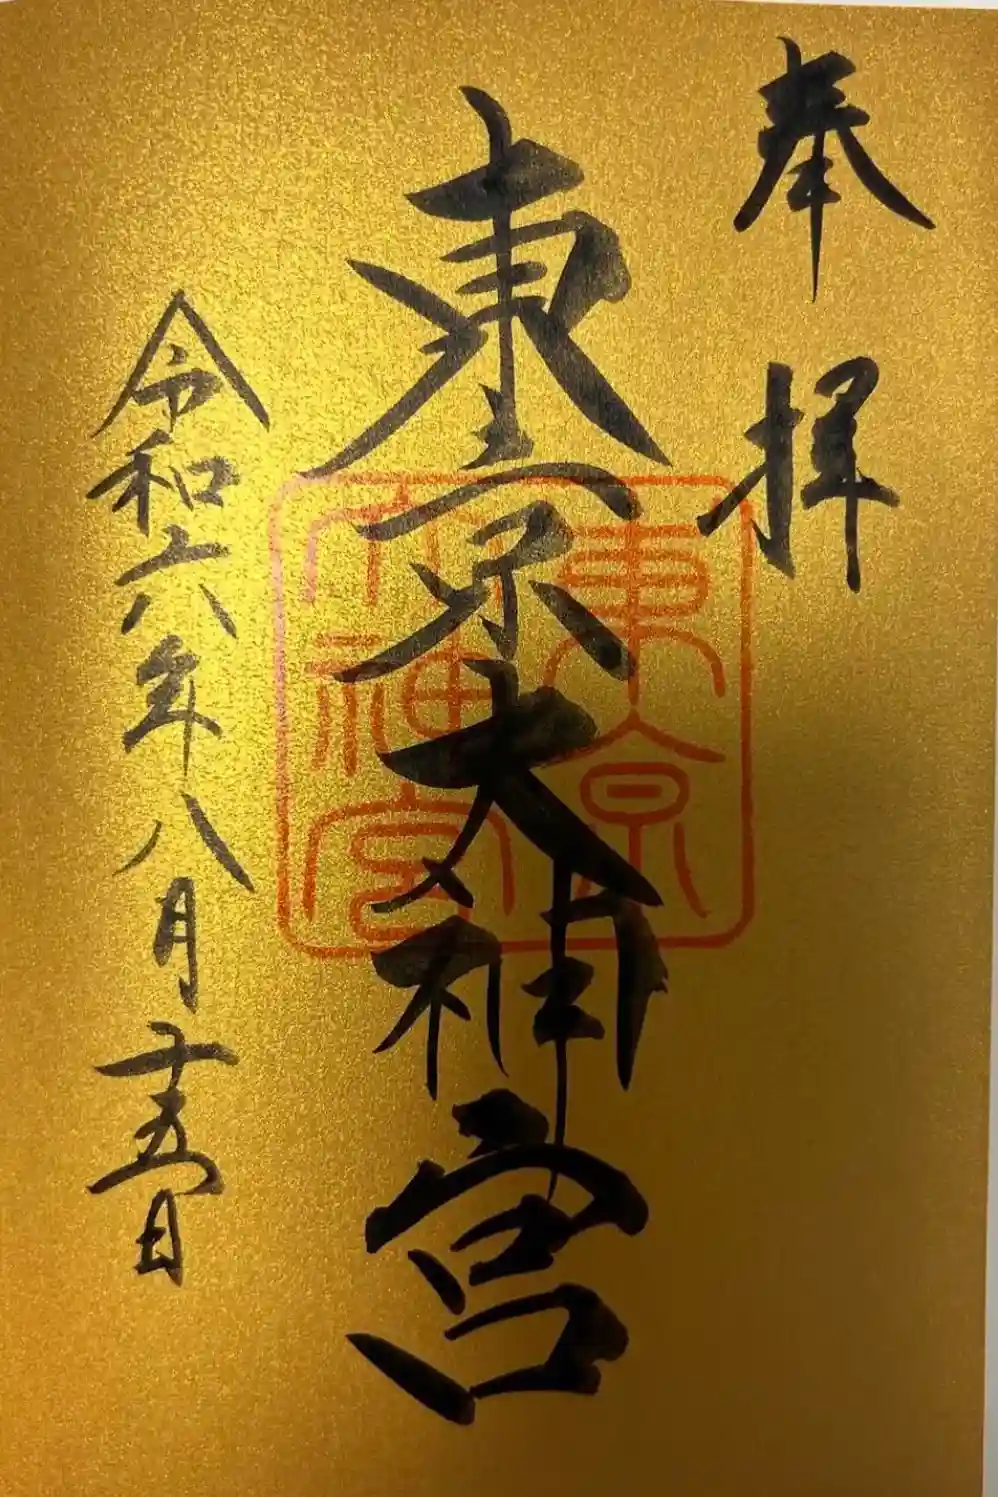 奉拝
東京大神宮
東京
大神宮
令和六年八月十五日